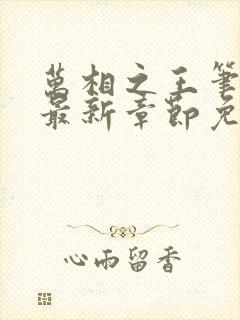 萬相之王筆
最新章節免
心雨留香